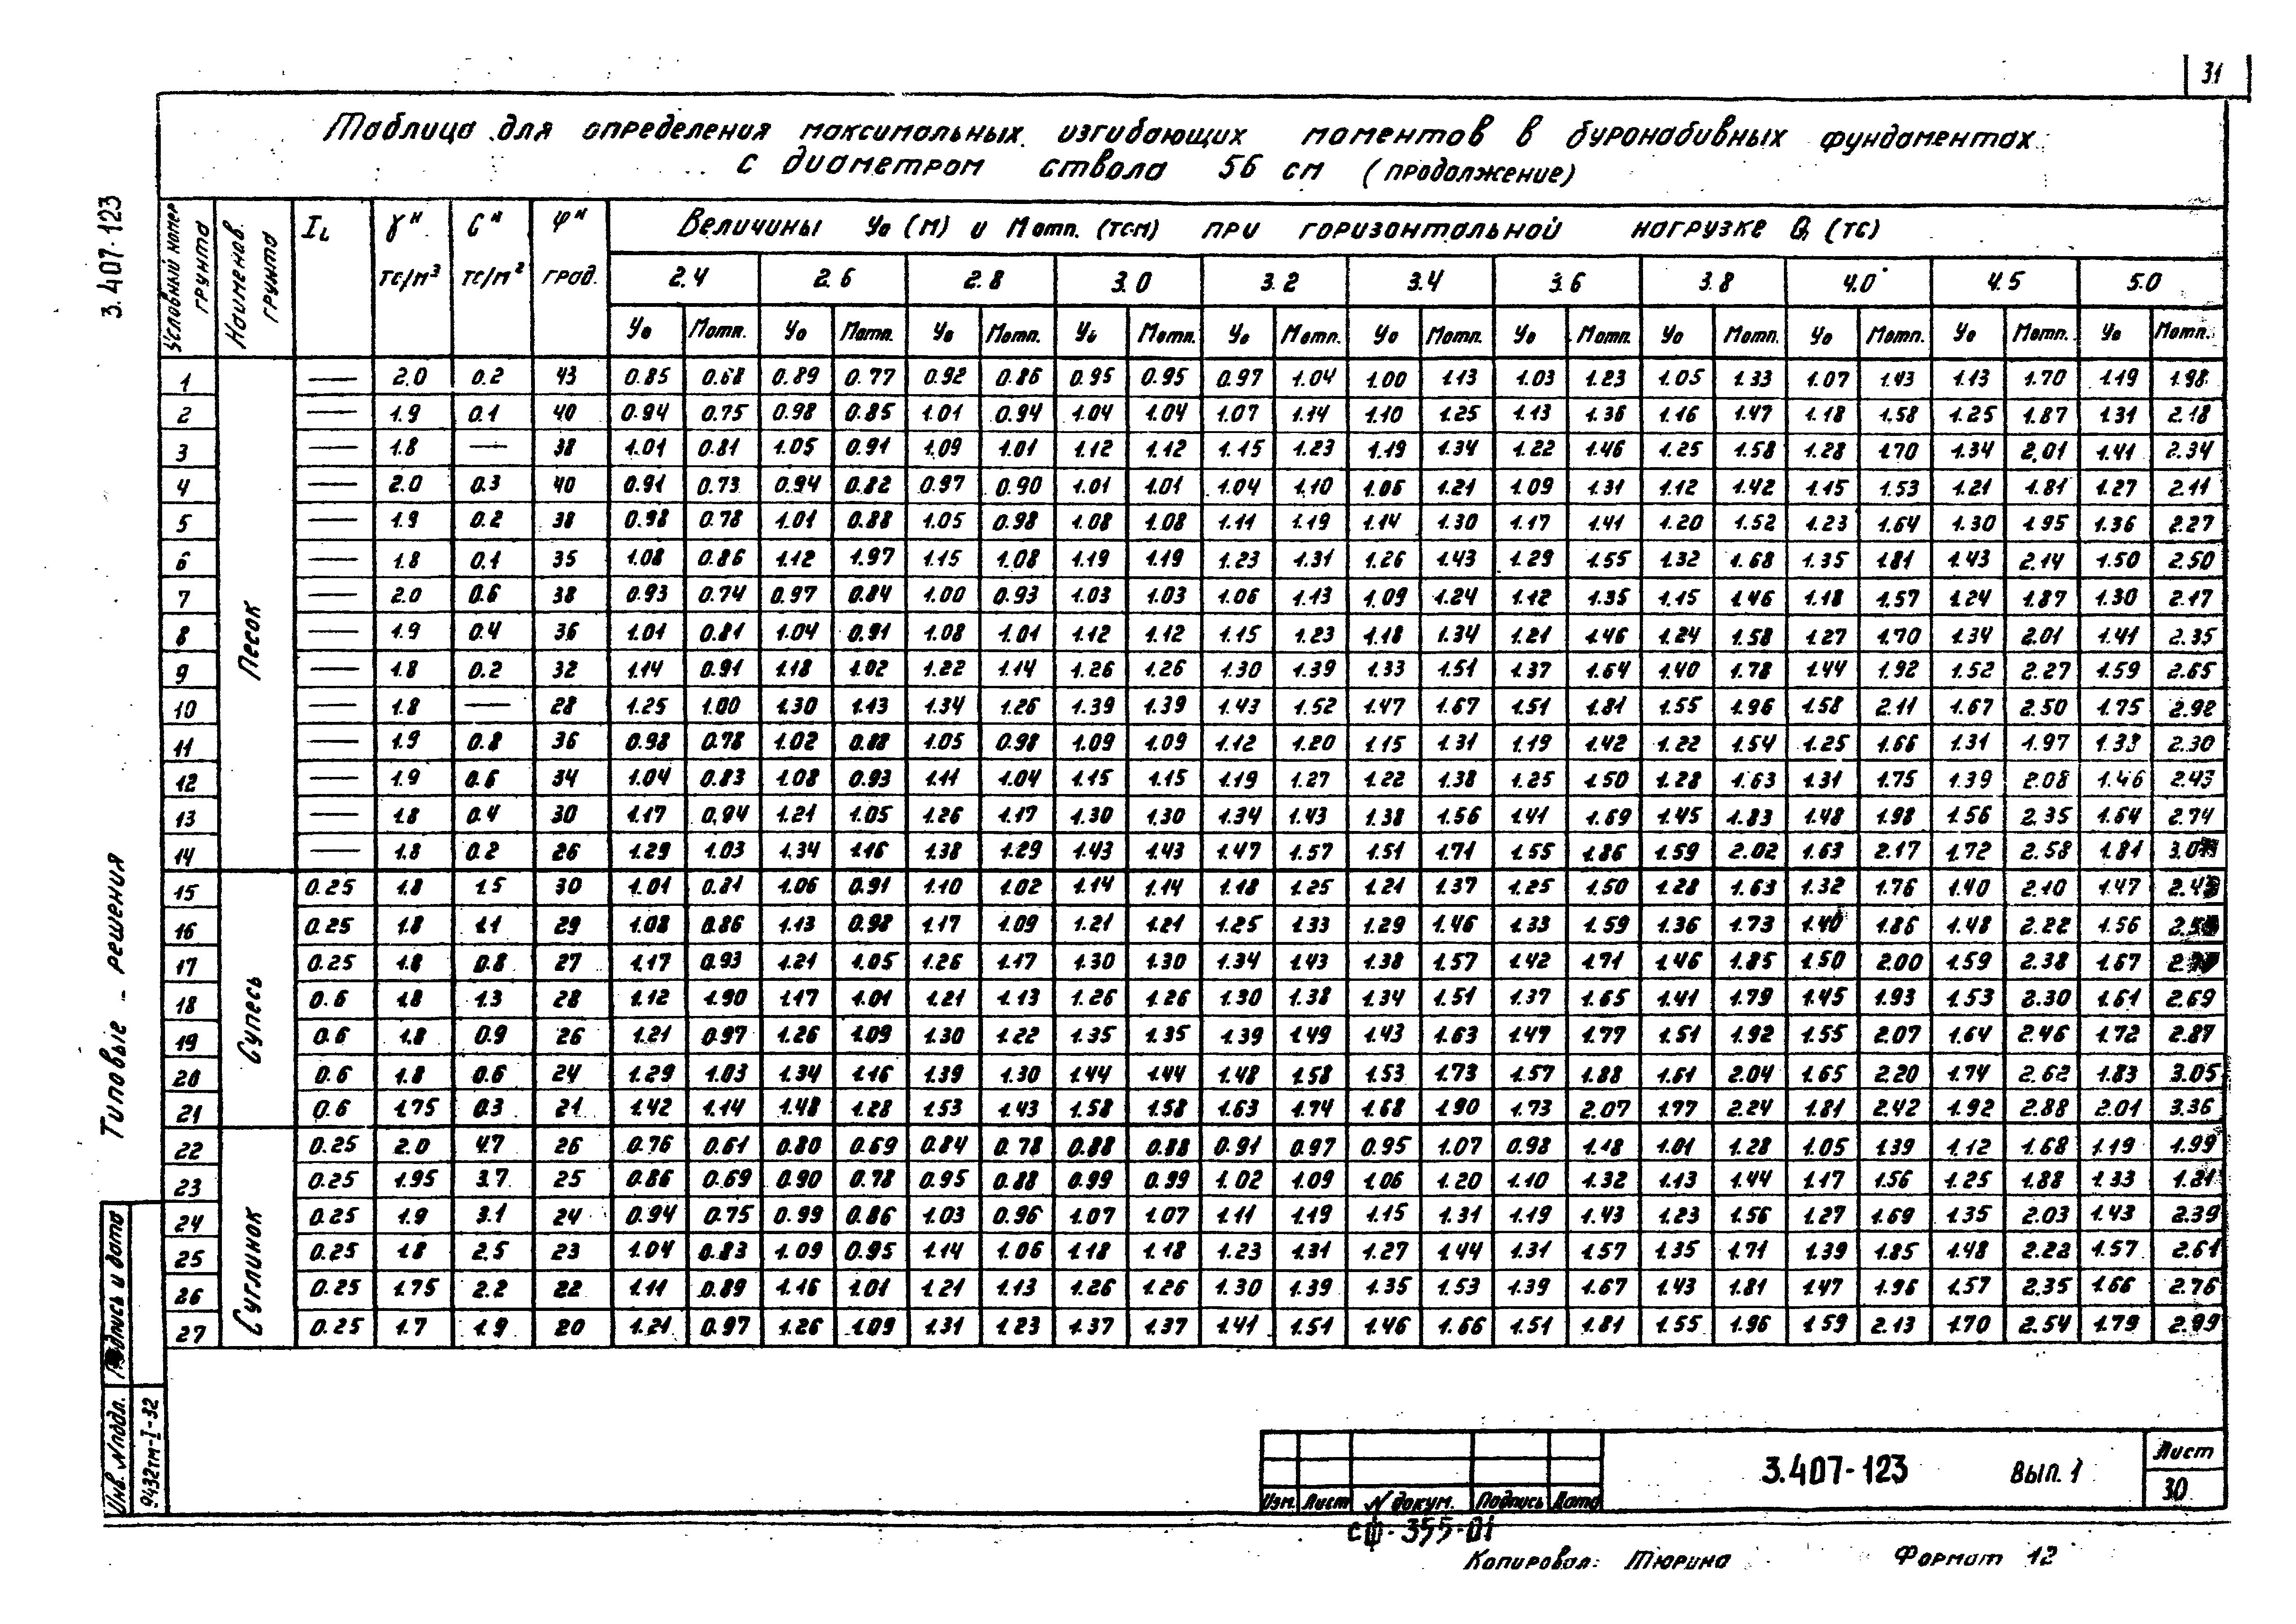 31
Таблица для определения максимальных изгибающих моментов в буронабивных фундаментах
с диаметром ствола 56 см (продолжение)
3.407-123
Типовые - решения
Условный номер грунта Наименов. грунта IL γн тс/м³ Cн тс/м² φн град. Величины У0 (м) и Мотп. (тс·м) при горизонтальной нагрузке Q1 (тс)
2.4 2.6 2.8 3.0 3.2 3.4 3.6 3.8 4.0 4.5 5.0
У0 Мотп. У0 Мотп. У0 Мотп. У0 Мотп. У0 Мотп. У0 Мотп. У0 Мотп. У0 Мотп. У0 Мотп. У0 Мотп. У0 Мотп.
Песок
1 — 2.0 0.2 43 0.85 0.68 0.89 0.77 0.92 0.86 0.95 0.95 0.97 1.04 1.00 1.13 1.03 1.23 1.05 1.33 1.07 1.43 1.13 1.70 1.19 1.98
2 — 1.9 0.1 40 0.94 0.75 0.98 0.85 1.01 0.94 1.04 1.04 1.07 1.14 1.10 1.25 1.13 1.36 1.16 1.47 1.18 1.58 1.25 1.87 1.31 2.18
3 — 1.8 — 38 1.01 0.81 1.05 0.91 1.09 1.01 1.12 1.12 1.15 1.23 1.19 1.34 1.22 1.46 1.25 1.58 1.28 1.70 1.34 2.01 1.41 2.34
4 — 2.0 0.3 40 0.91 0.73 0.94 0.82 0.97 0.90 1.01 1.01 1.04 1.10 1.06 1.21 1.09 1.31 1.12 1.42 1.15 1.53 1.21 1.81 1.27 2.11
5 — 1.9 0.2 38 0.98 0.78 1.01 0.88 1.05 0.98 1.08 1.08 1.11 1.19 1.14 1.30 1.17 1.41 1.20 1.52 1.23 1.64 1.30 1.95 1.36 2.27
6 — 1.8 0.1 35 1.08 0.86 1.12 1.97 1.15 1.08 1.19 1.19 1.23 1.31 1.26 1.43 1.29 1.55 1.32 1.68 1.35 1.81 1.43 2.14 1.50 2.50
7 — 2.0 0.6 38 0.93 0.74 0.97 0.84 1.00 0.93 1.03 1.03 1.06 1.13 1.09 1.24 1.12 1.35 1.15 1.46 1.18 1.57 1.24 1.87 1.30 2.17
8 — 1.9 0.4 36 1.01 0.81 1.04 0.91 1.08 1.01 1.12 1.12 1.15 1.23 1.18 1.34 1.21 1.46 1.24 1.58 1.27 1.70 1.34 2.01 1.41 2.35
9 — 1.8 0.2 32 1.14 0.91 1.18 1.02 1.22 1.14 1.26 1.26 1.30 1.39 1.33 1.51 1.37 1.64 1.40 1.78 1.44 1.92 1.52 2.27 1.59 2.65
10 — 1.8 — 28 1.25 1.00 1.30 1.13 1.34 1.26 1.39 1.39 1.43 1.52 1.47 1.67 1.51 1.81 1.55 1.96 1.58 2.11 1.67 2.50 1.75 2.92
11 — 1.9 0.8 36 0.98 0.78 1.02 0.88 1.05 0.98 1.09 1.09 1.12 1.20 1.15 1.31 1.19 1.42 1.22 1.54 1.25 1.66 1.31 1.97 1.38 2.30
12 — 1.9 0.6 34 1.04 0.83 1.08 0.93 1.11 1.04 1.15 1.15 1.19 1.27 1.22 1.38 1.25 1.50 1.28 1.63 1.31 1.75 1.39 2.08 1.46 2.43
13 — 1.8 0.4 30 1.17 0.94 1.21 1.05 1.26 1.17 1.30 1.30 1.34 1.43 1.38 1.56 1.41 1.69 1.45 1.83 1.48 1.98 1.56 2.35 1.64 2.74
14 — 1.8 0.2 26 1.29 1.03 1.34 1.16 1.38 1.29 1.43 1.43 1.47 1.57 1.51 1.71 1.55 1.86 1.59 2.02 1.63 2.17 1.72 2.58 1.81
Супесь
15 0.25 1.8 1.5 30 1.01 0.81 1.06 0.91 1.10 1.02 1.14 1.14 1.18 1.25 1.21 1.37 1.25 1.50 1.28 1.63 1.32 1.76 1.40 2.10 1.47
16 0.25 1.8 1.1 29 1.08 0.86 1.13 0.98 1.17 1.09 1.21 1.21 1.25 1.33 1.29 1.46 1.33 1.59 1.36 1.73 1.40 1.86 1.48 2.22 1.56
17 0.25 1.8 0.8 27 1.17 0.93 1.21 1.05 1.26 1.17 1.30 1.30 1.34 1.43 1.38 1.57 1.42 1.71 1.46 1.85 1.50 2.00 1.59 2.38 1.67
18 0.6 1.8 1.3 28 1.12 1.90 1.17 1.01 1.21 1.13 1.26 1.26 1.30 1.38 1.34 1.51 1.37 1.65 1.41 1.79 1.45 1.93 1.53 2.30 1.61 2.69
19 0.6 1.8 0.9 26 1.21 0.97 1.26 1.09 1.30 1.22 1.35 1.35 1.39 1.49 1.43 1.63 1.47 1.77 1.51 1.92 1.55 2.07 1.64 2.46 1.72 2.87
20 0.6 1.8 0.6 24 1.29 1.03 1.34 1.16 1.39 1.30 1.44 1.44 1.48 1.58 1.53 1.73 1.57 1.88 1.61 2.04 1.65 2.20 1.74 2.62 1.83 3.05
21 0.6 1.75 0.3 21 1.42 1.14 1.48 1.28 1.53 1.43 1.58 1.58 1.63 1.74 1.68 1.90 1.73 2.07 1.77 2.24 1.81 2.42 1.92 2.88 2.01 3.36
Суглинок
22 0.25 2.0 4.7 26 0.76 0.61 0.80 0.69 0.84 0.78 0.88 0.88 0.91 0.97 0.95 1.07 0.98 1.18 1.01 1.28 1.05 1.39 1.12 1.68 1.19 1.99
23 0.25 1.95 3.7 25 0.86 0.69 0.90 0.78 0.95 0.88 0.99 0.99 1.02 1.09 1.06 1.20 1.10 1.32 1.13 1.44 1.17 1.56 1.25 1.88 1.33 1.21
24 0.25 1.9 3.1 24 0.94 0.75 0.99 0.86 1.03 0.96 1.07 1.07 1.11 1.19 1.15 1.31 1.19 1.43 1.23 1.56 1.27 1.69 1.35 2.03 1.43 2.39
25 0.25 1.8 2.5 23 1.04 0.83 1.09 0.95 1.14 1.06 1.18 1.18 1.23 1.31 1.27 1.44 1.31 1.57 1.35 1.71 1.39 1.85 1.48 2.22 1.57 2.61
26 0.25 1.75 2.2 22 1.11 0.89 1.16 1.01 1.21 1.13 1.26 1.26 1.30 1.39 1.35 1.53 1.39 1.67 1.43 1.81 1.47 1.96 1.57 2.35 1.66 2.76
27 0.25 1.7 1.9 20 1.21 0.97 1.26 1.09 1.31 1.23 1.37 1.37 1.41 1.51 1.46 1.66 1.51 1.81 1.55 1.96 1.59 2.13 1.70 2.54 1.79 2.99
Инв. № подл. Подпись и дата
9432тм-I-32
Изм. Лист № докум. Подпись Дата
3.407-123 Вып. 1
Лист
30
сф-355-01
Копировал: Тюрина Формат 12